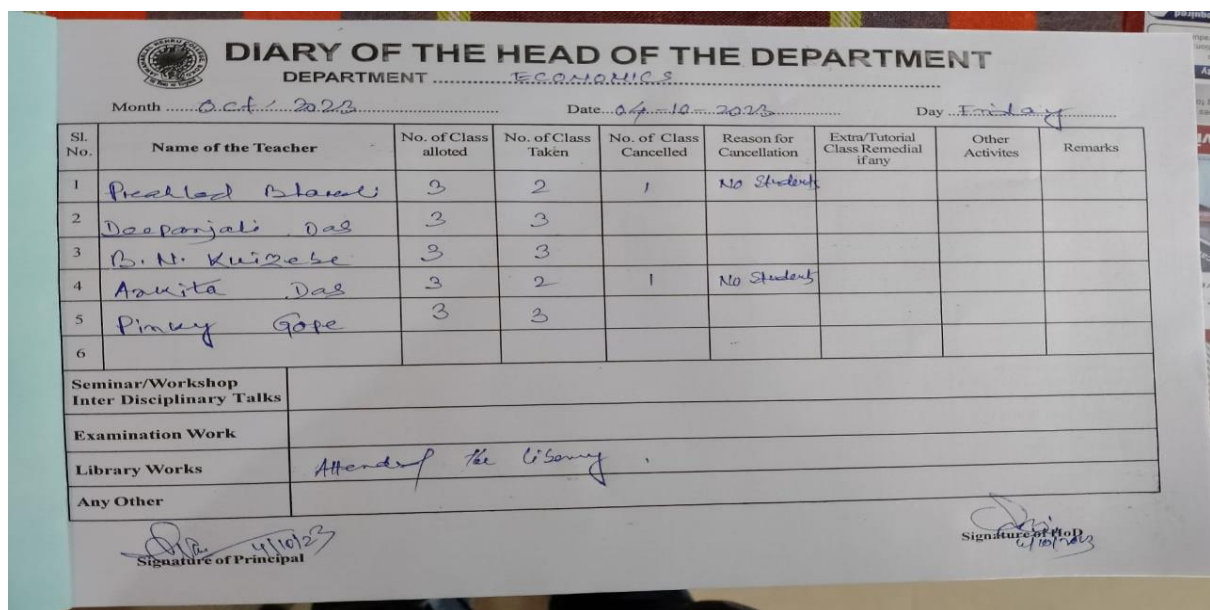 DIARY OF THE HEAD OF THE DEPARTMENT
DEPARTMENT ECONOMICS
Month Oct / 2023 Date 04-10-2023 Day Friday
Sl. No. Name of the Teacher No. of Class alloted No. of Class Taken No. of Class Cancelled Reason for Cancellation Extra/Tutorial Class Remedial if any Other Activites Remarks
1 3 2 1 No Students
2 Deepanjali Das 3 3
3 B. N. 3 3
4 Ankita Das 3 2 1 No Students
5 Pinky Gope 3 3
6
Seminar/Workshop
Inter Disciplinary Talks
Examination Work
Library Works Attended the library .
Any Other
4/10/23
Signature of Principal
Signature of HoD
4/10/2023